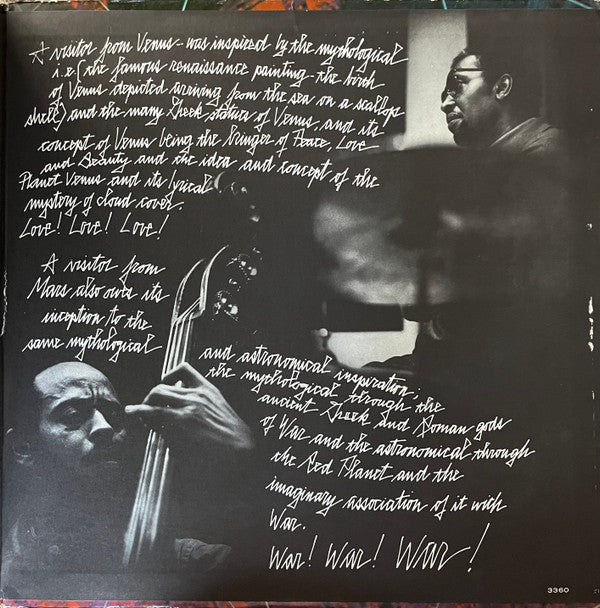 A visitor from Venus - was inspired by the mythological
i.e. (the famous renaissance painting - the birth
of Venus depicted arriving from the sea on a scallop
shell) and the many Greek statues of Venus, and its
concept of Venus being the bringer of Peace, Love
and Beauty and the idea and concept of the
Planet Venus and its lyrical
mystery of cloud cover.
Love! Love! Love!
A visitor from
Mars also owes its
inception to the
same mythological
and astronomical inspiration;
the mythological through the
ancient Greek and Roman gods
of War and the astronomical through
the Red Planet and the
imaginary association of it with
War.
War! War! War!
3360